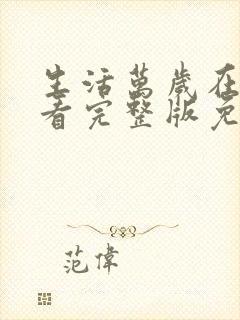 生活萬歲在
看完整版免
范偉